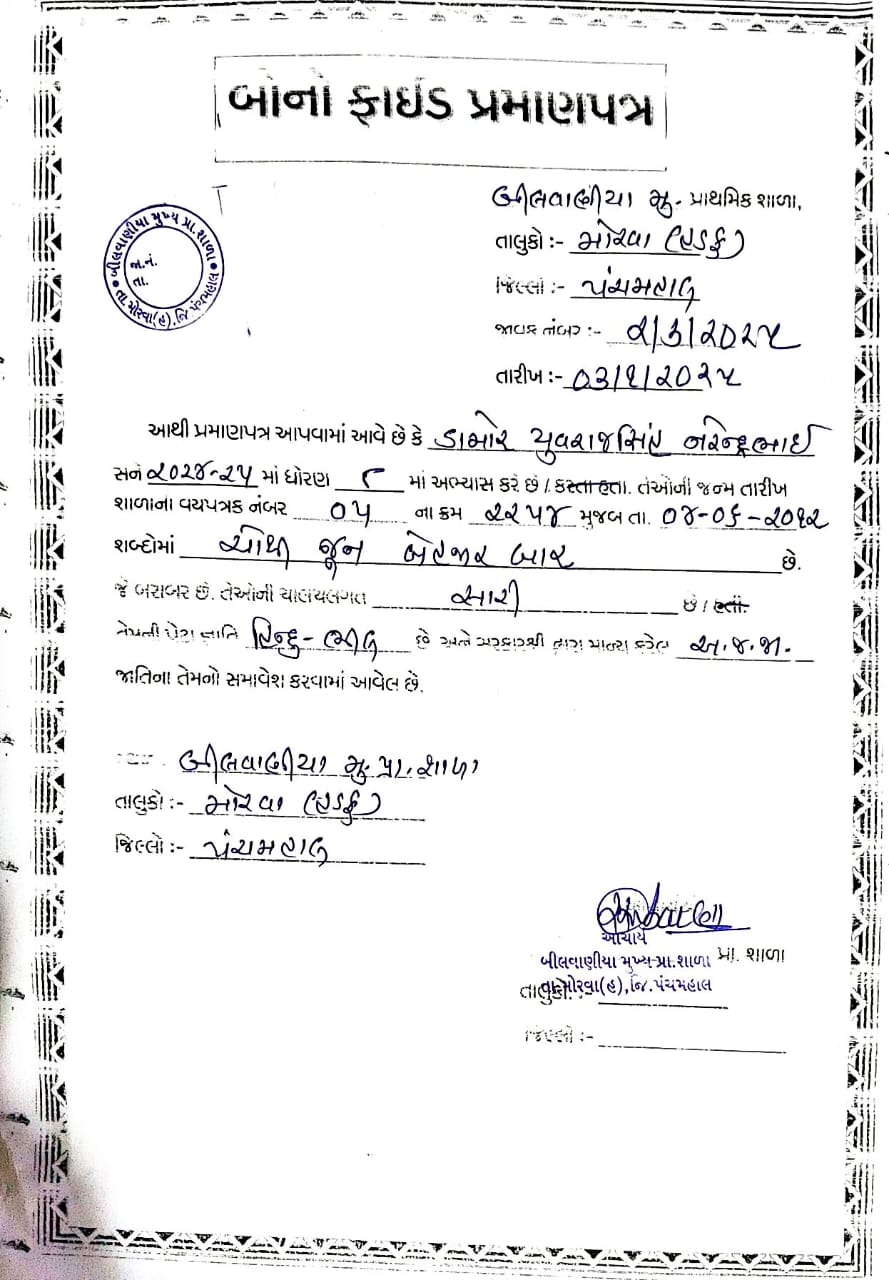 બોનો ફાઈડ પ્રમાણપત્ર
બીલવાણીયા મુ. પ્રાથમિક શાળા,
તાલુકો :- મોરવા (હડફ)
જિલ્લો :- પંચમહાલ
જાવક નંબર :- ૨/૩/૨૦૨૫
તારીખ :- ૦૩/૧/૨૦૨૫
બીલવાણીયા મુખ્ય પ્રા. શાળા
જા.નં.
તા.
તા. મોરવા(હ), જિ. પંચમહાલ
આથી પ્રમાણપત્ર આપવામાં આવે છે કે ડામોર યુવરાજસિંહ નરેન્દ્રભાઈ
સને ૨૦૨૪-૨૫ માં ધોરણ ૮ માં અભ્યાસ કરે છે / કરતા હતા. તેઓની જન્મ તારીખ
શાળાના વયપત્રક નંબર ૦૫ ના ક્રમ ૨૨૫૪ મુજબ તા. ૦૪-૦૬-૨૦૧૨
શબ્દોમાં ચોથી જૂન બેહજાર બાર છે.
જે બરાબર છે. તેઓની ચાલચલગત સારી છે / હતી.
તેમની પેટા જ્ઞાતિ હિન્દુ-ભીલ છે અને સરકારશ્રી દ્વારા માન્ય કરેલ અ.જ.જા.
જાતિના તેમનો સમાવેશ કરવામાં આવેલ છે.
બીલવાણીયા મુ. પ્રા. શાળા
તાલુકો :- મોરવા (હડફ)
જિલ્લો :- પંચમહાલ
આચાર્ય
બીલવાણીયા મુખ્ય પ્રા.શાળા પ્રા. શાળા
તાલુકો :- તા.મોરવા(હ), જિ.પંચમહાલ
જિલ્લો :-